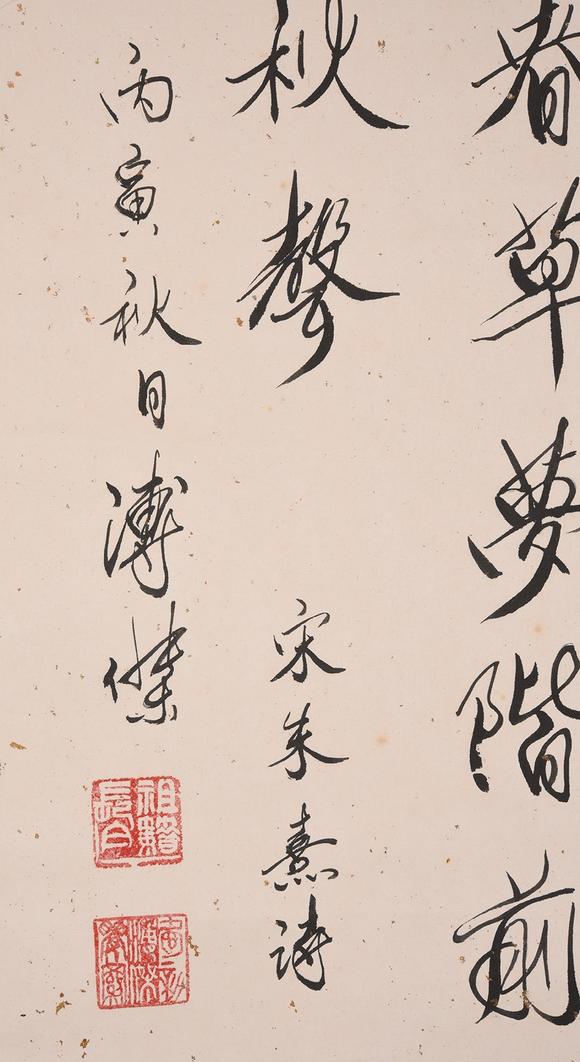 春草夢階前
秋聲 宋朱熹詩
丙寅秋日溥傑
祖籍
長白